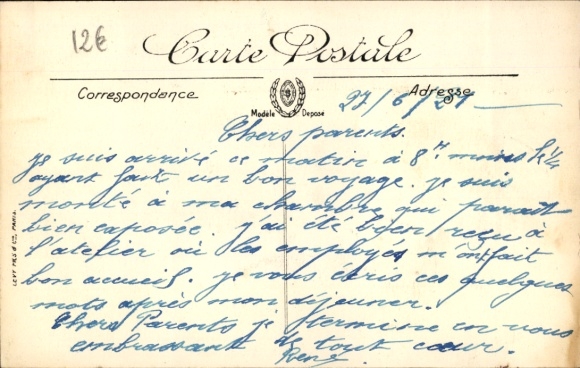 12€
Carte Postale
Correspondance
Adresse
Modèle Déposé
27/6/21
Chers parents.
je suis arrivé ce matin à 8h moins le 1/4
ayant fait un bon voyage. je suis
monté à ma chambre qui parait
bien exposée. j'ai été bien reçu à
l'atelier où les employés m'ont fait
bon accueil. je vous écris ces quelques
mots après mon déjeuner.
Chers Parents je termine en vous
embrassant de tout cœur.
René
LEVY FILS & Cie, PARIS.